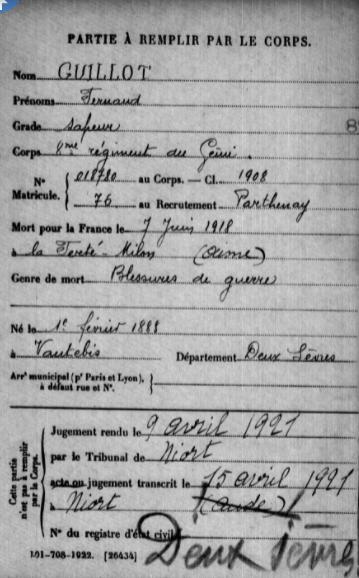 PARTIE À REMPLIR PAR LE CORPS.
Nom GUILLOT
Prénoms Fernand
Grade sapeur
8
Corps 8me régiment du Génie.
No 018780 au Corps. — Cl. 1908
Matricule. 76 au Recrutement Parthenay
Mort pour la France le 7 Juin 1918
à la Ferté-Milon (Aisne)
Genre de mort Blessures de guerre
Né le 1er février 1888
à Vautebis Département Deux Sèvres
Arrt municipal (pr Paris et Lyon),
à défaut rue et No.
Cette partie
n'est pas à remplir
par le Corps.
Jugement rendu le 9 avril 1921
par le Tribunal de Niort
acte ou jugement transcrit le 15 avril 1921
à Niort (Aude)
No du registre d'état civil
Deux Sèvres
101-708-1922. [26434]